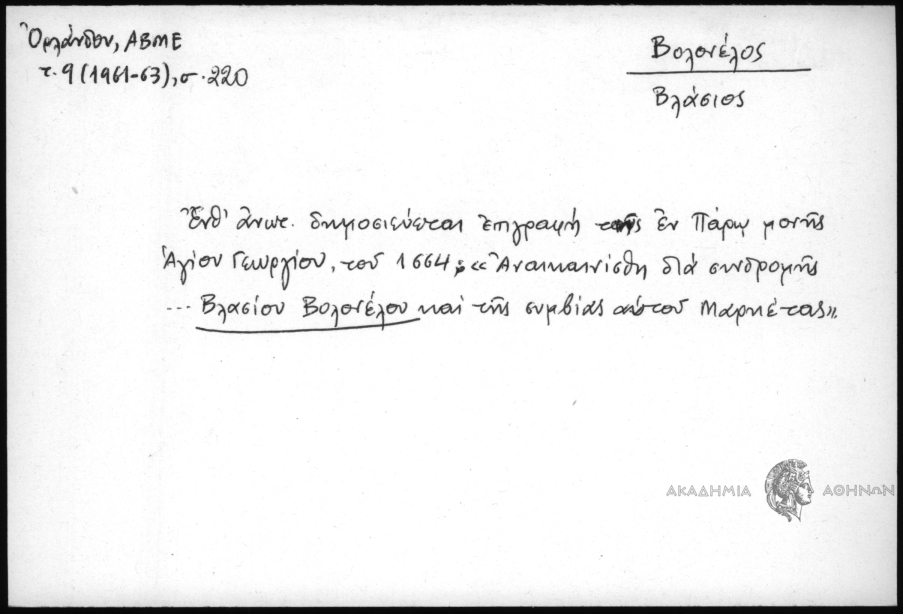 Ὀρλάνδου, ΑΒΜΕ
τ. 9 (1961-63), σ. 220
Βολονέλος
Βλάσιος
Ἔνθ' ἀνωτ. δημοσιεύεται ἐπιγραφὴ τῆς ἐν Πάρῳ μονῆς
Ἁγίου Γεωργίου, τοῦ 1664: «Ἀνεκαινίσθη διὰ συνδρομῆς
... Βλασίου Βολονέλου καὶ τῆς συμβίας αὐτοῦ Μαρκέτας».
ΑΚΑΔΗΜΙΑ ΑΘΗΝΩΝ